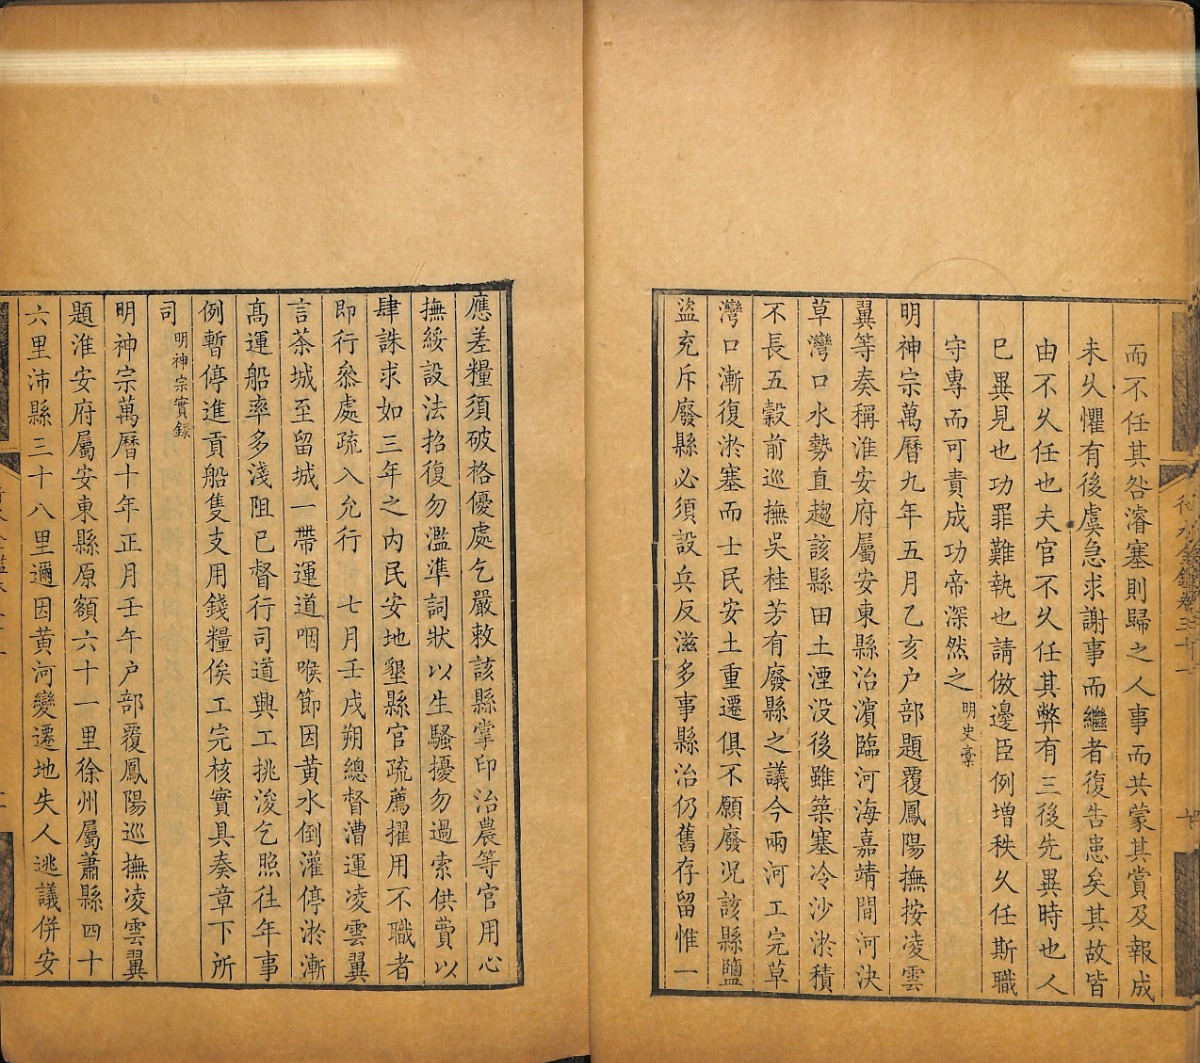 而不任其咎濬塞則歸之人事而共蒙其賞及報成
未久懼有後虞急求謝事而繼者復告患矣其故皆
由不久任也夫官不久任其弊有三後先異時也人
已異見也功罪難執也請倣邊臣例增秩久任斯職
守專而可責成功帝深然之明史稾
明神宗萬曆九年五月乙亥户部題覆鳳陽撫按凌雲
翼等奏稱淮安府屬安東縣治濱臨河海嘉靖間河決
草灣口水勢直趨該縣田土湮没後雖築塞冷沙淤積
不長五穀前巡撫吳桂芳有廢縣之議今兩河工完草
灣口漸復淤塞而士民安土重遷俱不願廢況該縣鹽
盜充斥廢縣必須設兵反滋多事縣治仍舊存留惟一
應差糧須破格優處乞嚴敕該縣掌印治農等官用心
撫綏設法招復勿濫準詞狀以生騷擾勿過索供費以
肆誅求如三年之内民安地墾縣官疏薦擢用不職者
即行叅處疏入允行 七月壬戌朔總督漕運凌雲翼
言茶城至留城一帶運道咽喉節因黄水倒灌停淤漸
高運船率多淺阻已督行司道興工挑浚乞照往年事
例暫停進貢船隻支用錢糧俟工完核實具奏章下所
司明神宗實録
明神宗萬曆十年正月壬午户部覆鳳陽巡撫凌雲翼
題淮安府屬安東縣原額六十一里徐州屬蕭縣四十
六里沛縣三十八里邇因黄河變遷地失人逃議併安